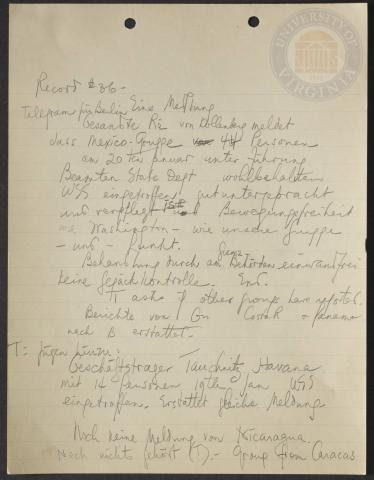 UNIVERSITY
VIRGINIA
Record #36-
Telegram für Berlin Eine Meldung
Gesandte von Kollenberg meldet
dass Mexico-Gruppe 44 Personen
am 20ten Januar unter Führung
Beamten State Dept wohlbehalten
WSS eingetroffen gut unterbracht
und verpflegt ist und Bewegungsfreiheit
wie Washington - wie unsere Gruppe
- und - funkt.
Behandlung durch am Grenz Behörden einwandfrei
keine Gepäckkontrolle. End.
T asks if other groups have reported.
Berichte von Gu CostaR + Panama
nach B erstattet.
T: fügen hinzu:
Geschäftsträger Tauchnitz, Havana
mit 14 Personen 19th Jan WSS
eingetroffen. Erstattet gleiche Meldung
Noch keine Meldung von Nicaragua.
Noch nichts gehört (T).- Group from Caracas